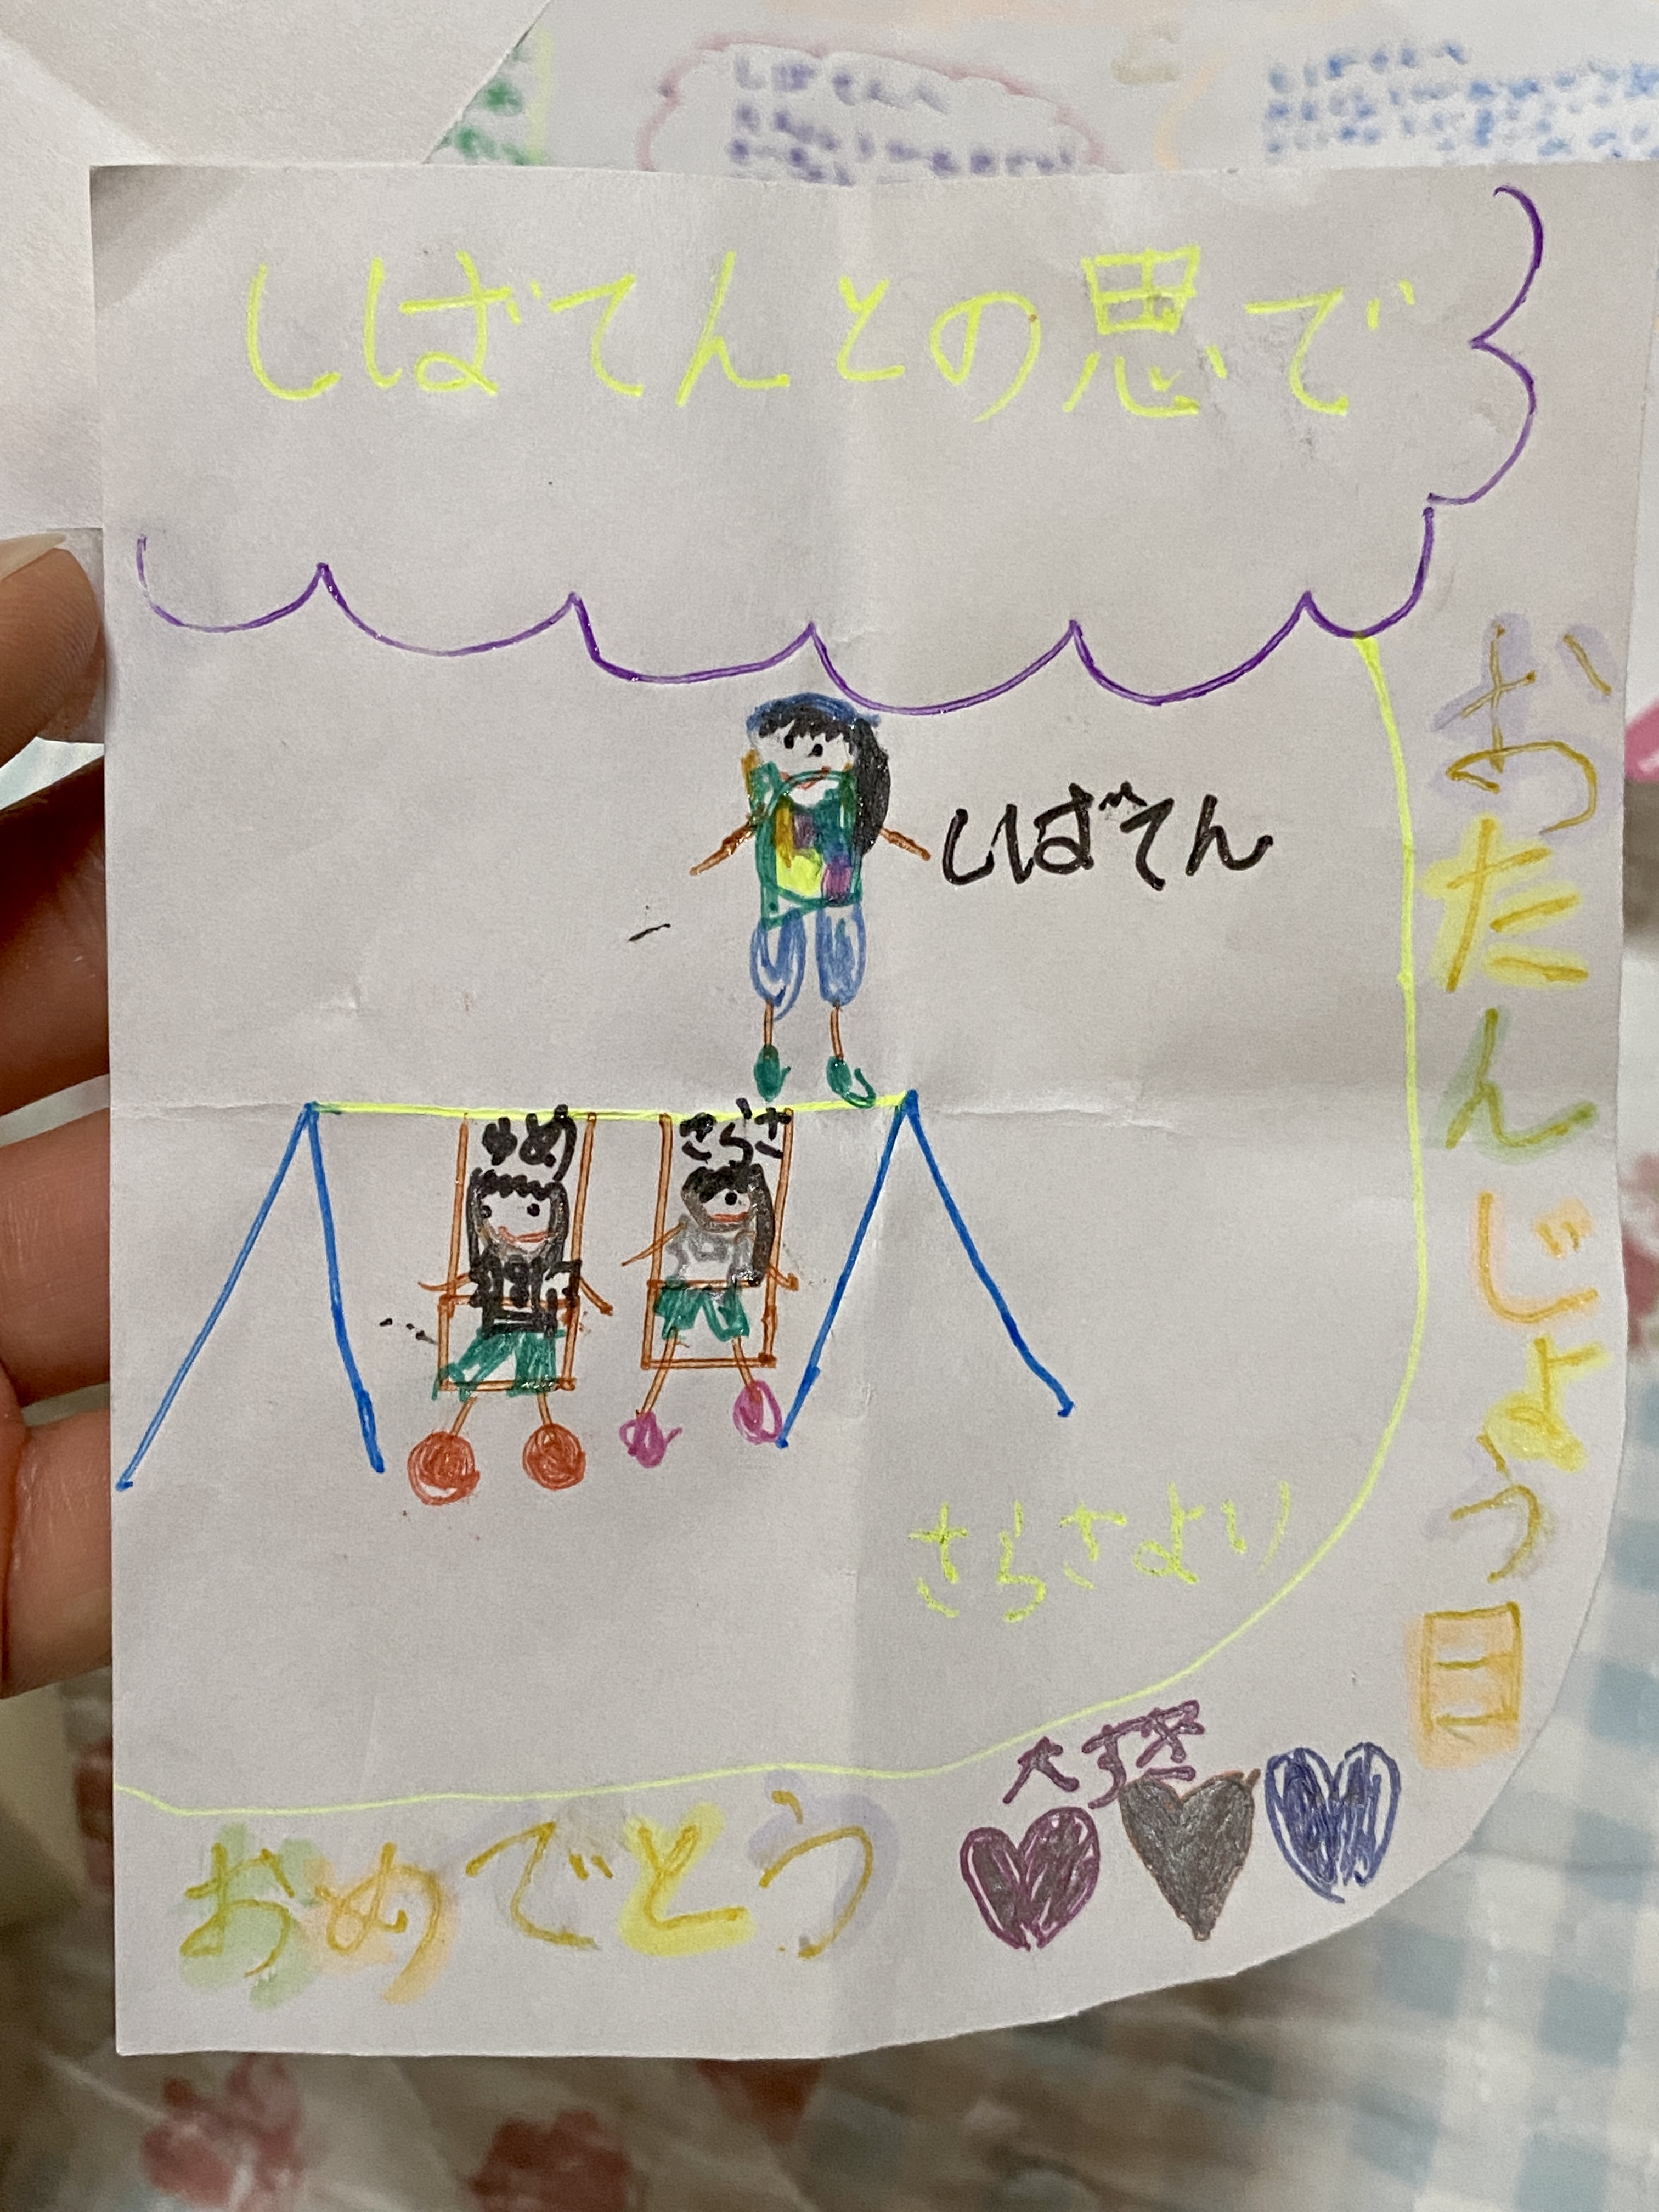 しばてんとの思で
しばてん
ゆめ
さらさ
さらさより
おたんじょう日
おめでとう
大すき